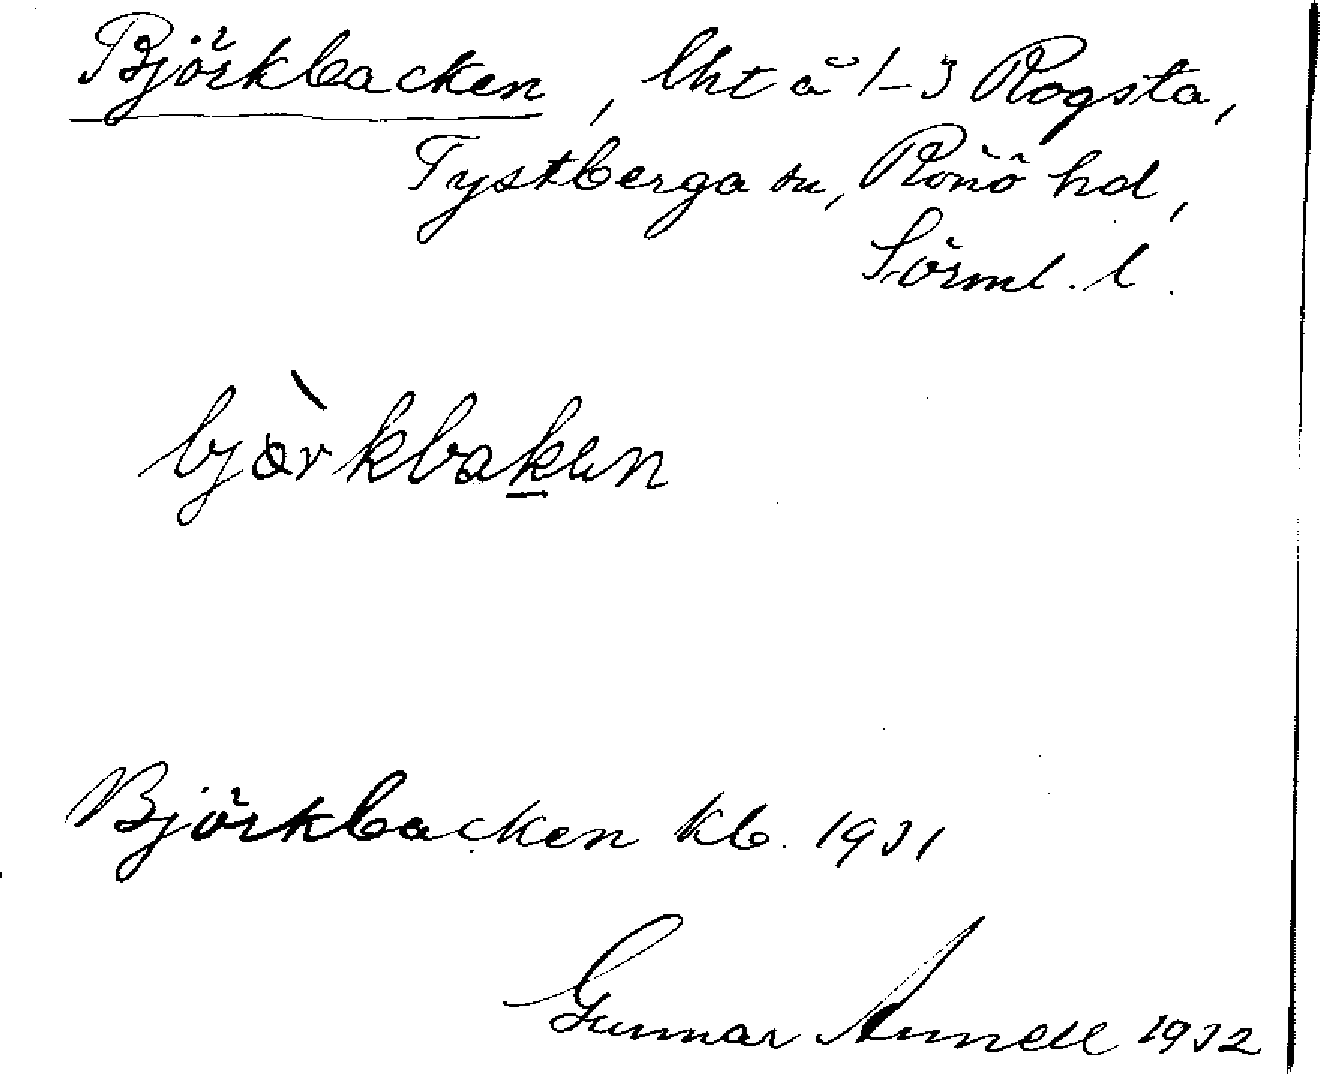 Björkbacken, lht å 1-3 Rogsta,
Tystberga sn, Rönö hd,
Sörml. l.
bjærkbaken
Björkbacken kb. 1931
Gunnar 1932